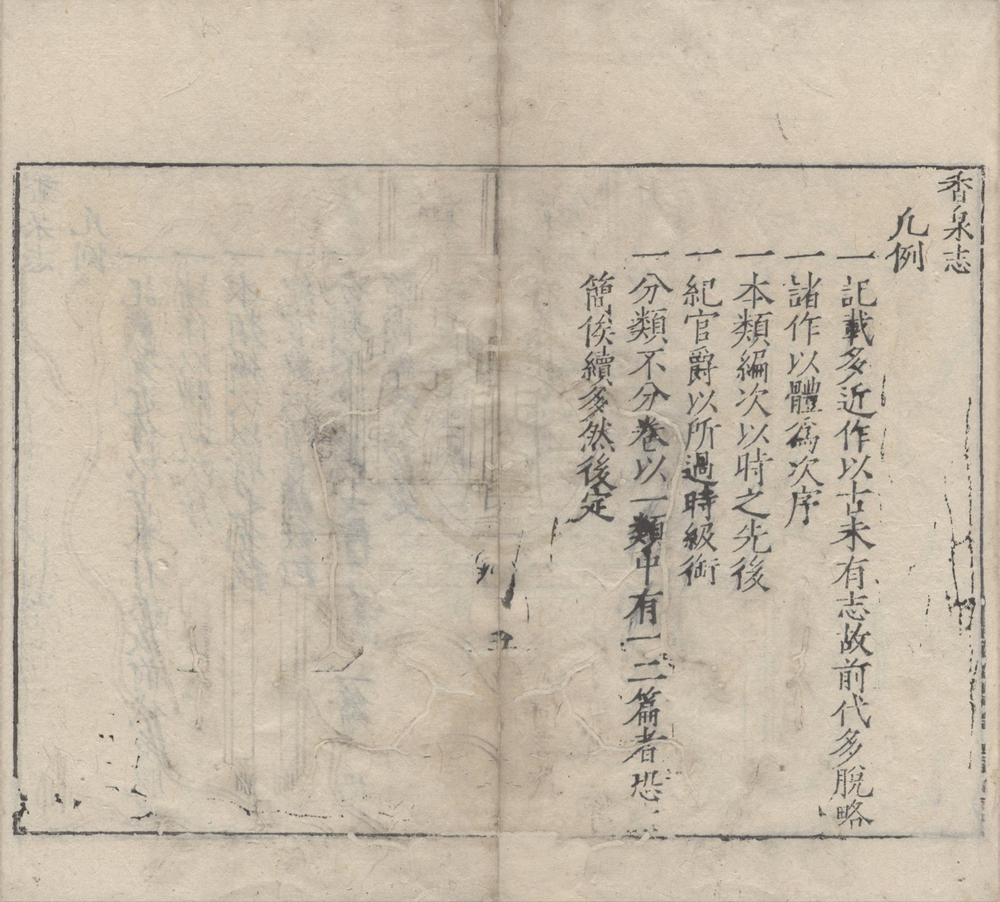 香泉志
凡例
一記載多近作以古未有志故前代多脫略
一諸作以體爲次序
一本類編次以時之先後
一紀官爵以所過時級銜
一分類不分卷以一類中有一二篇者恐
簡俟續多然後定